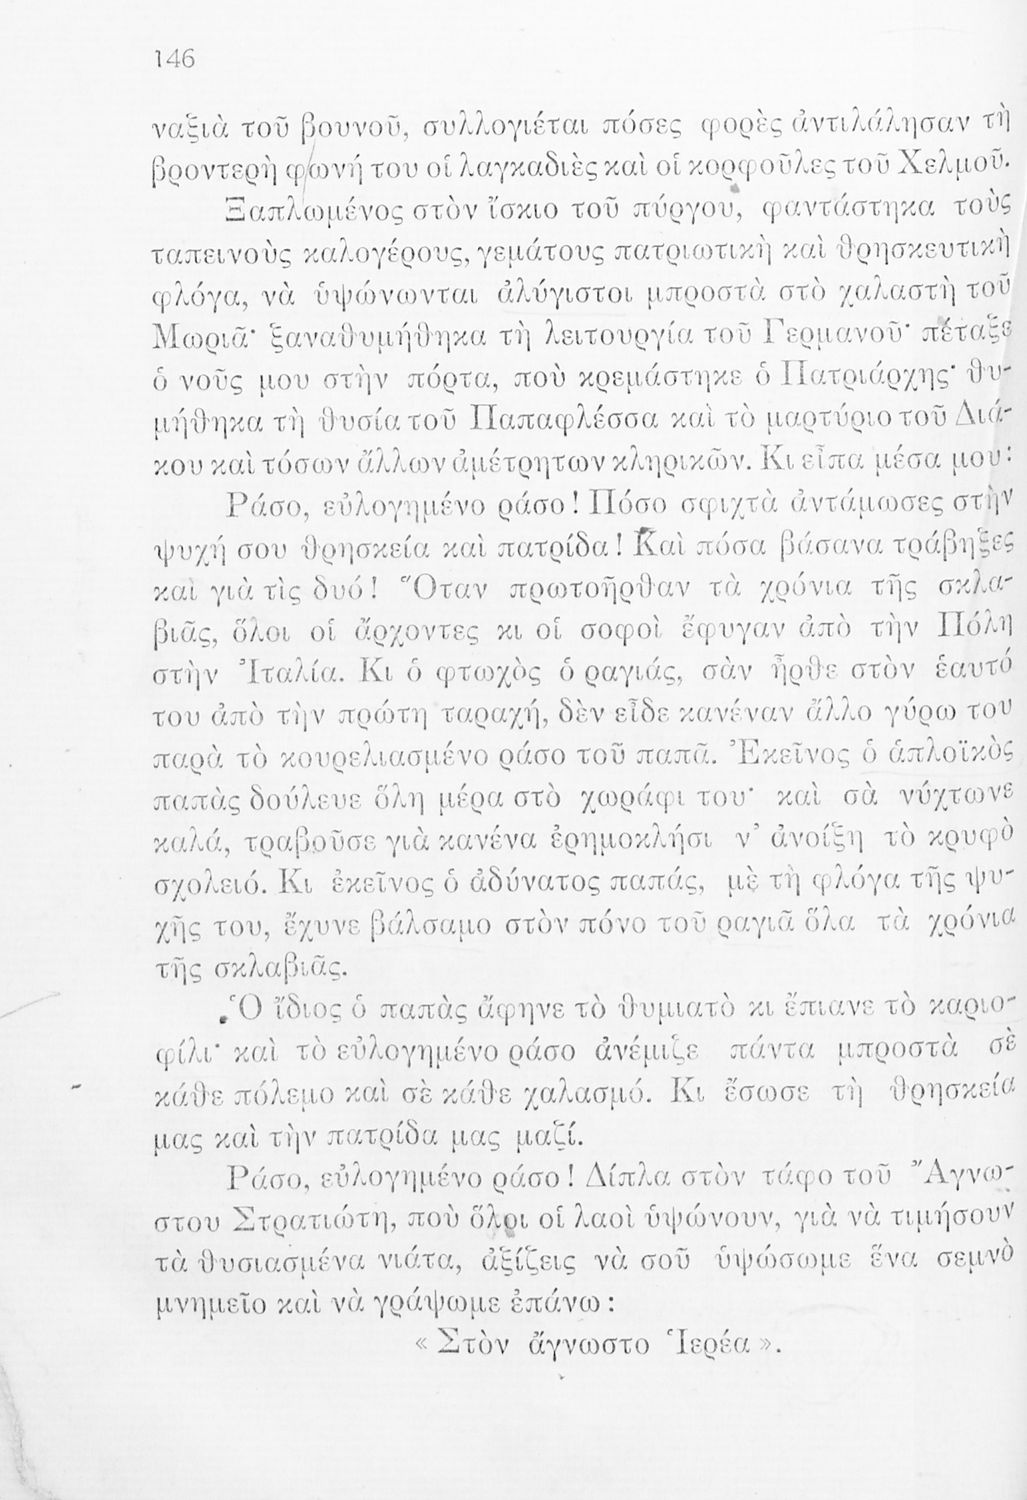 146
ναξιὰ τοῦ βουνοῦ, συλλογιέται πόσες φορὲς ἀντιλάλησαν τὴ
βροντερὴ φωνή του οἱ λαγκαδιὲς καὶ οἱ κορφοῦλες τοῦ Χελμοῦ.
Ξαπλωμένος στὸν ἴσκιο τοῦ πύργου, φαντάστηκα τοὺς
ταπεινοὺς καλογέρους, γεμάτους πατριωτικὴ καὶ θρησκευτικὴ
φλόγα, νὰ ὑψώνωνται ἀλύγιστοι μπροστὰ στὸ χαλαστὴ τοῦ
Μωριᾶ· ξαναθυμήθηκα τὴ λειτουργία τοῦ Γερμανοῦ· πέταξε
ὁ νοῦς μου στὴν πόρτα, ποὺ κρεμάστηκε ὁ Πατριάρχης· θυ-
μήθηκα τὴ θυσία τοῦ Παπαφλέσσα καὶ τὸ μαρτύριο τοῦ Διά-
κου καὶ τόσων ἄλλων ἀμέτρητων κληρικῶν. Κι εἶπα μέσα μου:
Ράσο, εὐλογημένο ράσο! Πόσο σφιχτὰ ἀντάμωσες στὴν
ψυχή σου θρησκεία καὶ πατρίδα! Καὶ πόσα βάσανα τράβηξες
καὶ γιὰ τὶς δυό! Ὅταν πρωτοῆρθαν τὰ χρόνια τῆς σκλα-
βιᾶς, ὅλοι οἱ ἄρχοντες κι οἱ σοφοὶ ἔφυγαν ἀπὸ τὴν Πόλη
στὴν Ἰταλία. Κι ὁ φτωχὸς ὁ ραγιάς, σὰν ἦρθε στὸν ἑαυτό
του ἀπὸ τὴν πρώτη ταραχή, δὲν εἶδε κανέναν ἄλλο γύρω του
παρὰ τὸ κουρελιασμένο ράσο τοῦ παπᾶ. Ἐκεῖνος ὁ ἁπλοϊκὸς
παπὰς δούλευε ὅλη μέρα στὸ χωράφι του· καὶ σὰ νύχτωνε
καλά, τραβοῦσε γιὰ κανένα ἐρημοκλήσι ν’ ἀνοίξη τὸ κρυφὸ
σχολειό. Κι ἐκεῖνος ὁ ἀδύνατος παπάς, μὲ τὴ φλόγα τῆς ψυ-
χῆς του, ἔχυνε βάλσαμο στὸν πόνο τοῦ ραγιᾶ ὅλα τὰ χρόνια
τῆς σκλαβιᾶς.
Ὁ ἴδιος ὁ παπὰς ἄφηνε τὸ θυμιατὸ κι ἔπιανε τὸ καριο-
φίλι· καὶ τὸ εὐλογημένο ράσο ἀνέμιζε πάντα μπροστὰ σὲ
κάθε πόλεμο καὶ σὲ κάθε χαλασμό. Κι ἔσωσε τὴ θρησκεία
μας καὶ τὴν πατρίδα μας μαζί.
Ράσο, εὐλογημένο ράσο! Δίπλα στὸν τάφο τοῦ Ἄγνω-
στου Στρατιώτη, ποὺ ὅλοι οἱ λαοὶ ὑψώνουν, γιὰ νὰ τιμήσουν
τὰ θυσιασμένα νιάτα, ἀξίζεις νὰ σοῦ ὑψώσωμε ἕνα σεμνὸ
μνημεῖο καὶ νὰ γράψωμε ἐπάνω:
« Στὸν ἄγνωστο Ἱερέα ».